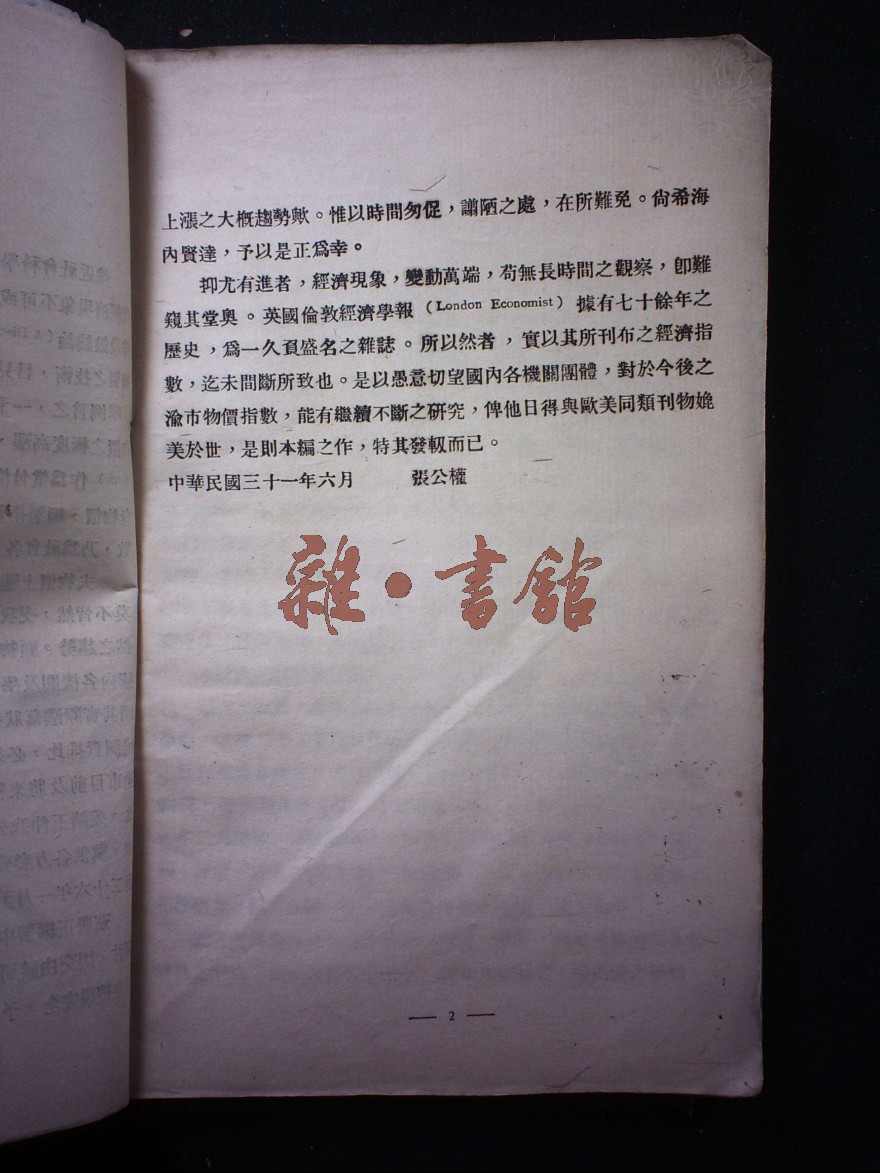 上漲之大概趨勢歟。惟以時間匆促，譾陋之處，在所難免。尙希海
內賢達，予以是正爲幸。
抑尤有進者，經濟現象，變動萬端，苟無長時間之觀察，卽難
窺其堂奧。英國倫敦經濟學報（London Economist）據有七十餘年之
歷史，爲一久負盛名之雜誌。所以然者，實以其所刊布之經濟指
數，迄未間斷所致也。是以愚意切望國內各機關團體，對於今後之
渝市物價指數，能有繼續不斷之硏究，俾他日得與歐美同類刊物媲
美於世，是則本編之作，特其發軔而已。
中華民國三十一年六月　　張公權
雜·書館
— 2 —